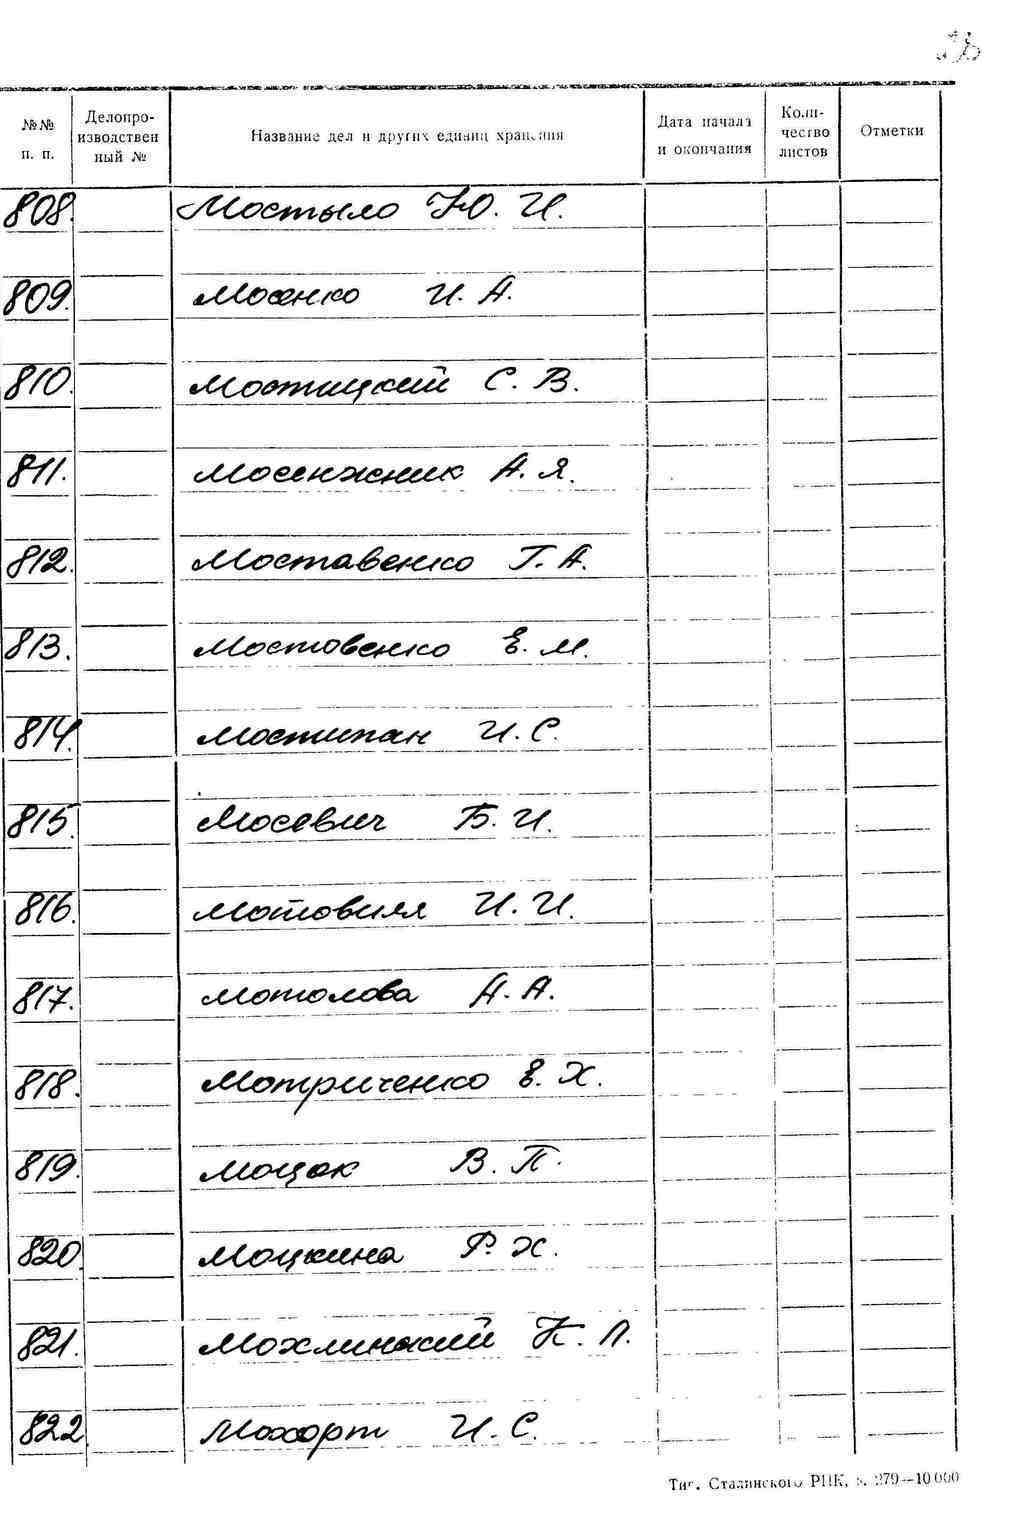 №№ п. п. Делопроизводствен ный № Название дел и других единиц хранения Дата начала и окончания Количество листов Отметки
808. Мостыло Ю. И.
809. Мосенко И. А.
810. Мостицкий С. В.
811. Мосенжник А. Я.
812. Моставенко Г. А.
813. Мостовенко Е. М.
814. Мостипан И. С.
815. Мосевич Б. И.
816. Мотовиля И. И.
817. Мотолова А. А.
818. Мотриченко Е. Х.
819. Моцак В. П.
820. Моцкина Р. Х.
821. Мохлинский К. Л.
822 Мохорт И. С.
Тип. Сталинского РПК, з. 279—10 000